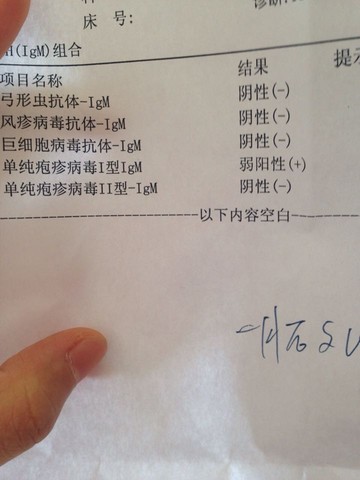 诊断
床 号:
(IgM)组合
项目名称 结果 提示
弓形虫抗体-IgM 阴性(-)
风疹病毒抗体-IgM 阴性(-)
巨细胞病毒抗体-IgM 阴性(-)
单纯疱疹病毒I型IgM 弱阳性(+)
单纯疱疹病毒II型-IgM 阴性(-)
以下内容空白